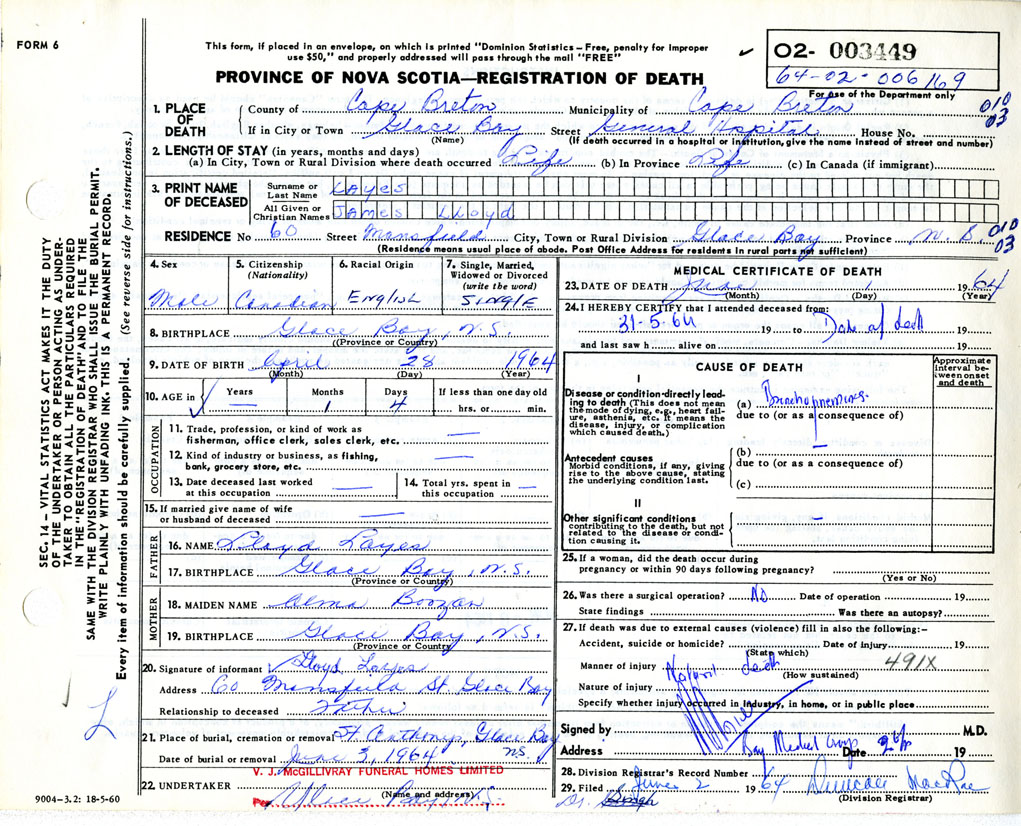 FORM 6
This form, if placed in an envelope, on which is printed "Dominion Statistics – Free, penalty for improper
use $50," and properly addressed will pass through the mail "FREE"
02- 003449
64-02-006169
For use of the Department only
PROVINCE OF NOVA SCOTIA—REGISTRATION OF DEATH
1. PLACE OF DEATH County of Cape Breton Municipality of Cape Breton 010
If in City or Town Glace Bay Street General Hospital House No. 03
(Name) (If death occurred in a hospital or institution, give the name instead of street and number)
2. LENGTH OF STAY (in years, months and days)
(a) In City, Town or Rural Division where death occurred Life (b) In Province Life (c) In Canada (if immigrant)
3. PRINT NAME OF DECEASED
Surname or Last Name Layes
All Given or Christian Names James Lloyd
RESIDENCE No 60 Street Mansfield City, Town or Rural Division Glace Bay Province N.S. 010 03
(Residence means usual place of abode. Post Office Address for residents in rural parts not sufficient)
4. Sex Male
5. Citizenship (Nationality) Canadian
6. Racial Origin English
7. Single, Married, Widowed or Divorced (write the word) Single
8. BIRTHPLACE Glace Bay, N.S.
((Province or Country)
9. DATE OF BIRTH April 28 1964
(Month) (Day) (Year)
10. AGE in ✓ Years — Months 1 Days 4 If less than one day old hrs. or min.
OCCUPATION
11. Trade, profession, or kind of work as
fisherman, office clerk, sales clerk, etc. —
12. Kind of industry or business, as fishing,
bank, grocery store, etc. —
13. Date deceased last worked
at this occupation —
14. Total yrs. spent in
this occupation —
15. If married give name of wife
or husband of deceased —
FATHER
16. NAME Lloyd Layes
17. BIRTHPLACE Glace Bay, N.S.
(Province or Country)
MOTHER
18. MAIDEN NAME Alma Boozan
19. BIRTHPLACE Glace Bay, N.S.
(Province or Country)
20. Signature of informant Lloyd Layes
Address 60 Mansfield St. Glace Bay
Relationship to deceased Father
21. Place of burial, cremation or removal St Anthonys, Glace Bay
N.S.
Date of burial or removal June 3, 1964
V. J. McGILLIVRAY FUNERAL HOMES LIMITED
22. UNDERTAKER (Name and address)
Per Glace Bay N.S.
9004–3.2: 18-5-60
MEDICAL CERTIFICATE OF DEATH
23. DATE OF DEATH June 1 1964
(Month) (Day) (Year)
24. I HEREBY CERTIFY that I attended deceased from:
31-5-64 19 to Date of death 19
and last saw h alive on 19
CAUSE OF DEATH
Approximate interval between onset and death
I
Disease or condition directly leading to death (This does not mean the mode of dying, e.g., heart failure, asthenia, etc. It means the disease, injury, or complication which caused death.)
(a) Bronchopneumonia
due to (or as a consequence of)
Antecedent causes
Morbid conditions, if any, giving rise to the above cause, stating the underlying condition last.
(b) —
due to (or as a consequence of)
(c)
II
Other significant conditions
contributing to the death, but not related to the disease or condition causing it.
—
25. If a woman, did the death occur during
pregnancy or within 90 days following pregnancy?
(Yes or No)
26. Was there a surgical operation? No Date of operation 19
State findings Was there an autopsy?
27. If death was due to external causes (violence) fill in also the following:–
Accident, suicide or homicide? Date of injury 19
(State which)
491X
Manner of injury Natural death
(How sustained)
Nature of injury
Specify whether injury occurred in industry, in home, or in public place
Signed by M.D.
Address Bay Medical Group Date 19
28. Division Registrar's Record Number 64
29. Filed June 2 1964 Duncan MacRae
(Division Registrar)
Dr. Singh
SEC. 14 – VITAL STATISTICS ACT MAKES IT THE DUTY
OF THE UNDERTAKER OR PERSON ACTING AS UNDER-
TAKER TO OBTAIN ALL THE PARTICULARS REQUIRED
IN THE "REGISTRATION OF DEATH" AND TO FILE THE
SAME WITH THE DIVISION REGISTRAR WHO SHALL ISSUE THE BURIAL PERMIT.
WRITE PLAINLY WITH UNFADING INK. THIS IS A PERMANENT RECORD.
Every item of information should be carefully supplied. (See reverse side for instructions.)
L